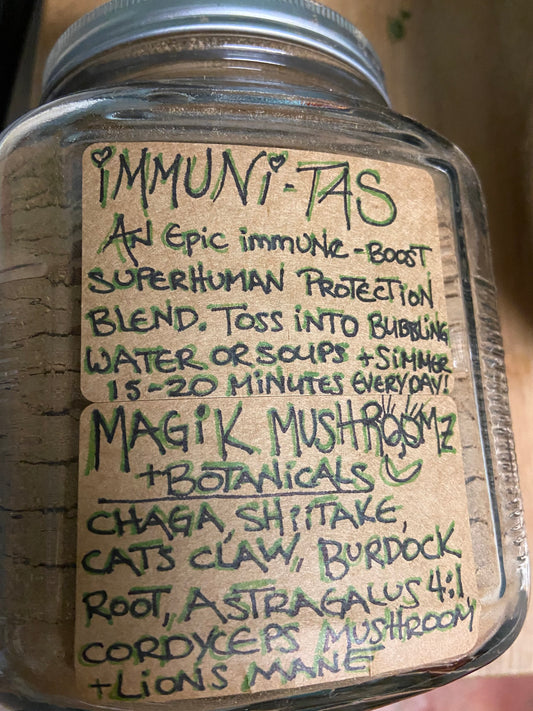 iMMUNi-TAS
AN EPiC iMMUNE-BOOST
SUPERHUMAN PROTECTiON
BLEND. TOSS iNTO BUBBLiNG
WATER OR SOUPS + SiMMER
15-20 MiNUTES EVERYDAY!
MAGiK MUSHROOMZ
+BOTANiCALS
CHAGA, SHiiTAKE,
CATS CLAW, BURDOCK
ROOT, ASTRAGALUS 4:1
CORDYCEPS MUSHROOM
+LiONS MANE